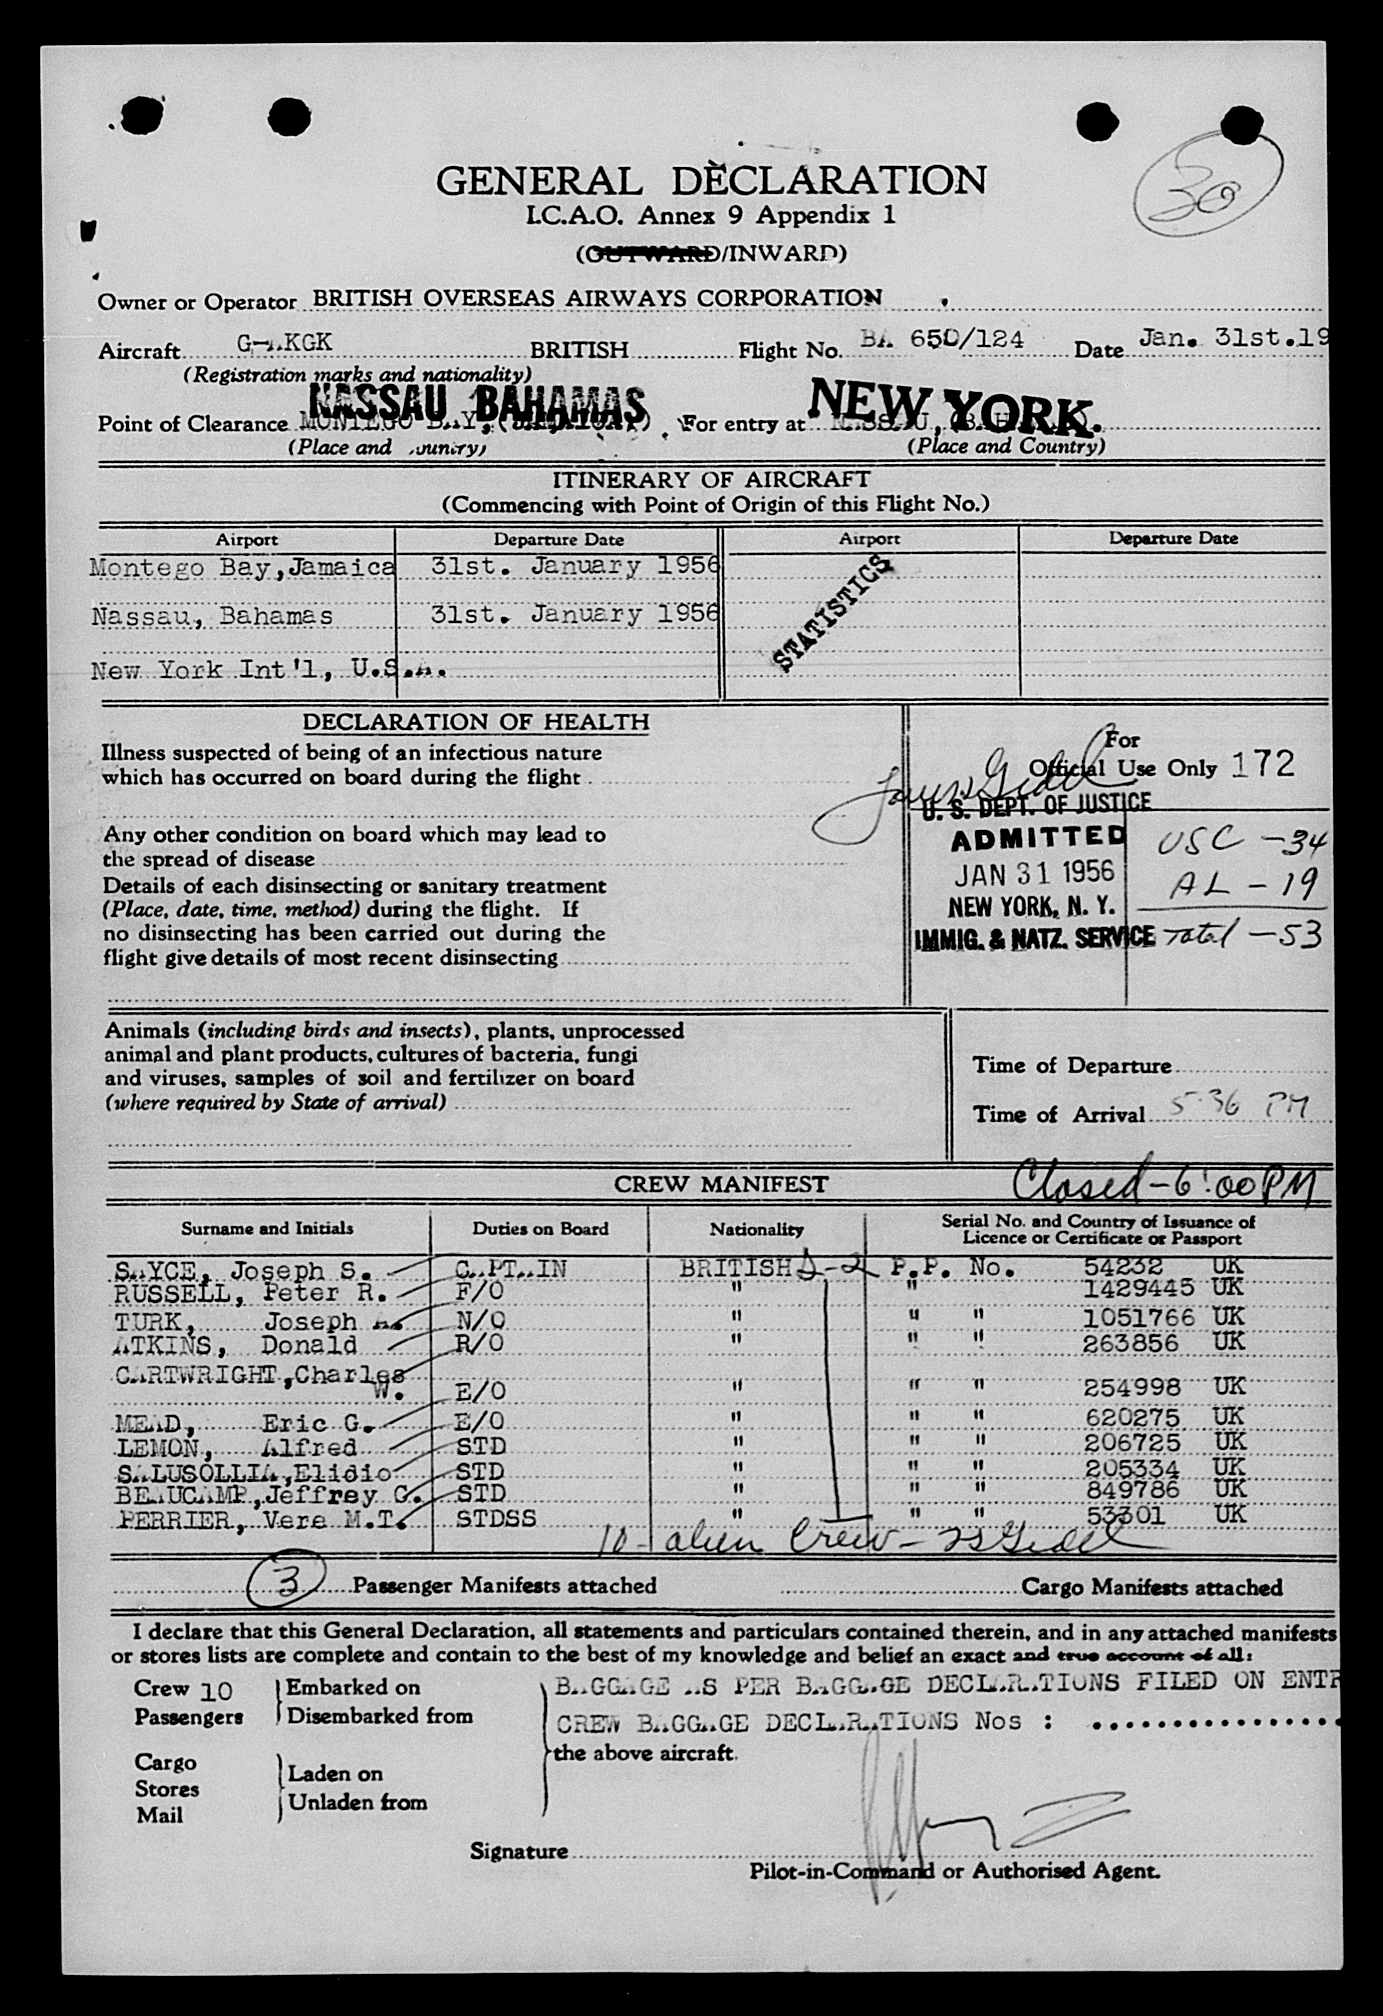 30
GENERAL DECLARATION
I.C.A.O. Annex 9 Appendix 1
(OUTWARD/INWARD)
Owner or Operator BRITISH OVERSEAS AIRWAYS CORPORATION
Aircraft G-AKGK BRITISH Flight No. BA 650/124 Date Jan. 31st.19
(Registration marks and nationality)
NASSAU BAHAMAS NEW YORK.
Point of Clearance MONTEGO BAY, (JAMAICA) For entry at NASSAU, (BAHAMAS)
(Place and Country) (Place and Country)
ITINERARY OF AIRCRAFT
(Commencing with Point of Origin of this Flight No.)
Airport Departure Date Airport Departure Date
Montego Bay,Jamaica 31st. January 1956
STATISTICS
Nassau, Bahamas 31st. January 1956
New York Int'l, U.S.A.
DECLARATION OF HEALTH
Illness suspected of being of an infectious nature
which has occurred on board during the flight
Any other condition on board which may lead to
the spread of disease
Details of each disinsecting or sanitary treatment
(Place, date, time, method) during the flight. If
no disinsecting has been carried out during the
flight give details of most recent disinsecting
For
Official Use Only 172
U. S. DEPT. OF JUSTICE
ADMITTED
JAN 31 1956
NEW YORK, N. Y.
IMMIG. & NATZ. SERVICE
USC - 34
AL - 19
Total - 53
Animals (including birds and insects), plants, unprocessed
animal and plant products, cultures of bacteria, fungi
and viruses, samples of soil and fertilizer on board
(where required by State of arrival)
Time of Departure
Time of Arrival 5.36 PM
CREW MANIFEST Closed - 6:00 PM
Surname and Initials Duties on Board Nationality Serial No. and Country of Issuance of
Licence or Certificate or Passport
SAYCE, Joseph S. CAPTAIN BRITISH D-2 P.P. No. 54232 UK
RUSSELL, Peter R. F/O " " 1429445 UK
TURK, Joseph A. N/O " " " 1051766 UK
ATKINS, Donald R/O " " " 263856 UK
CARTWRIGHT,Charles
W. E/O " " " 254998 UK
MEAD, Eric G. E/O " " " 620275 UK
LEMON, Alfred STD " " " 206725 UK
SALUSOLLIA,Elidio STD " " " 205334 UK
BEAUCAMP,Jeffrey G. STD " " " 849786 UK
PERRIER, Vere M.T. STDSS " " " 53301 UK
10 - alien Crew -
3 Passenger Manifests attached Cargo Manifests attached
I declare that this General Declaration, all statements and particulars contained therein, and in any attached manifests
or stores lists are complete and contain to the best of my knowledge and belief an exact and true account of all:
Crew 10 Embarked on BAGGAGE AS PER BAGGAGE DECLARATIONS FILED ON ENTR
Passengers Disembarked from CREW BAGGAGE DECLARATIONS Nos : ................
the above aircraft.
Cargo
Stores Laden on
Mail Unladen from
Signature
Pilot-in-Command or Authorised Agent.